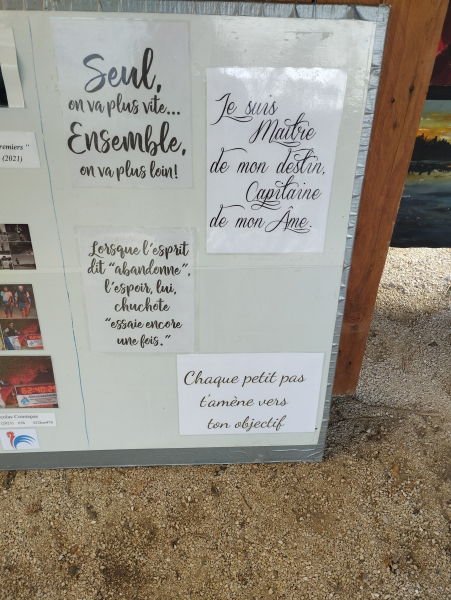 Seul,
on va plus vite...
Ensemble,
on va plus loin!
Je suis
Maître
de mon destin,
Capitaine
de mon Âme.
Lorsque l'esprit
dit "abandonne",
l'espoir, lui,
chuchote
"essaie encore
une fois."
Chaque petit pas
t'amène vers
ton objectif
remiers "
(2021)